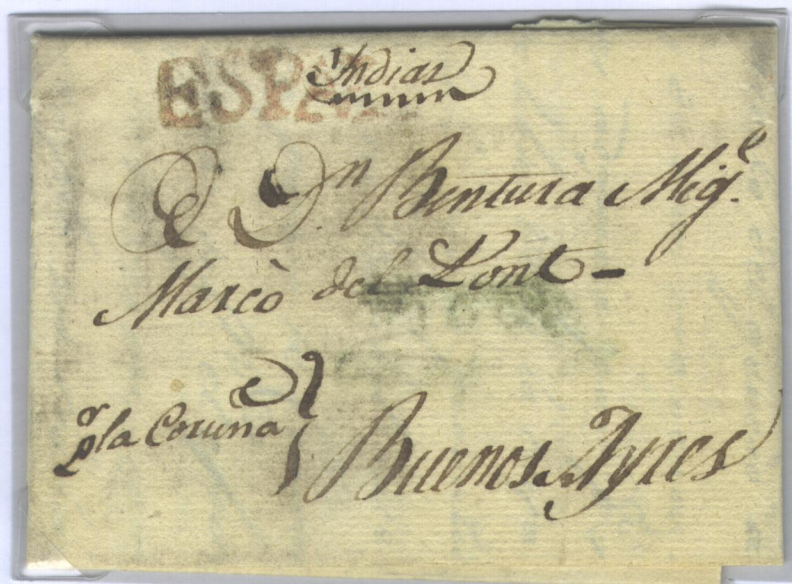 ESPA
Indias
A Dn. Bentura Mige.
Marcò del Pont -
pr la Coruña
Buenos Ayres